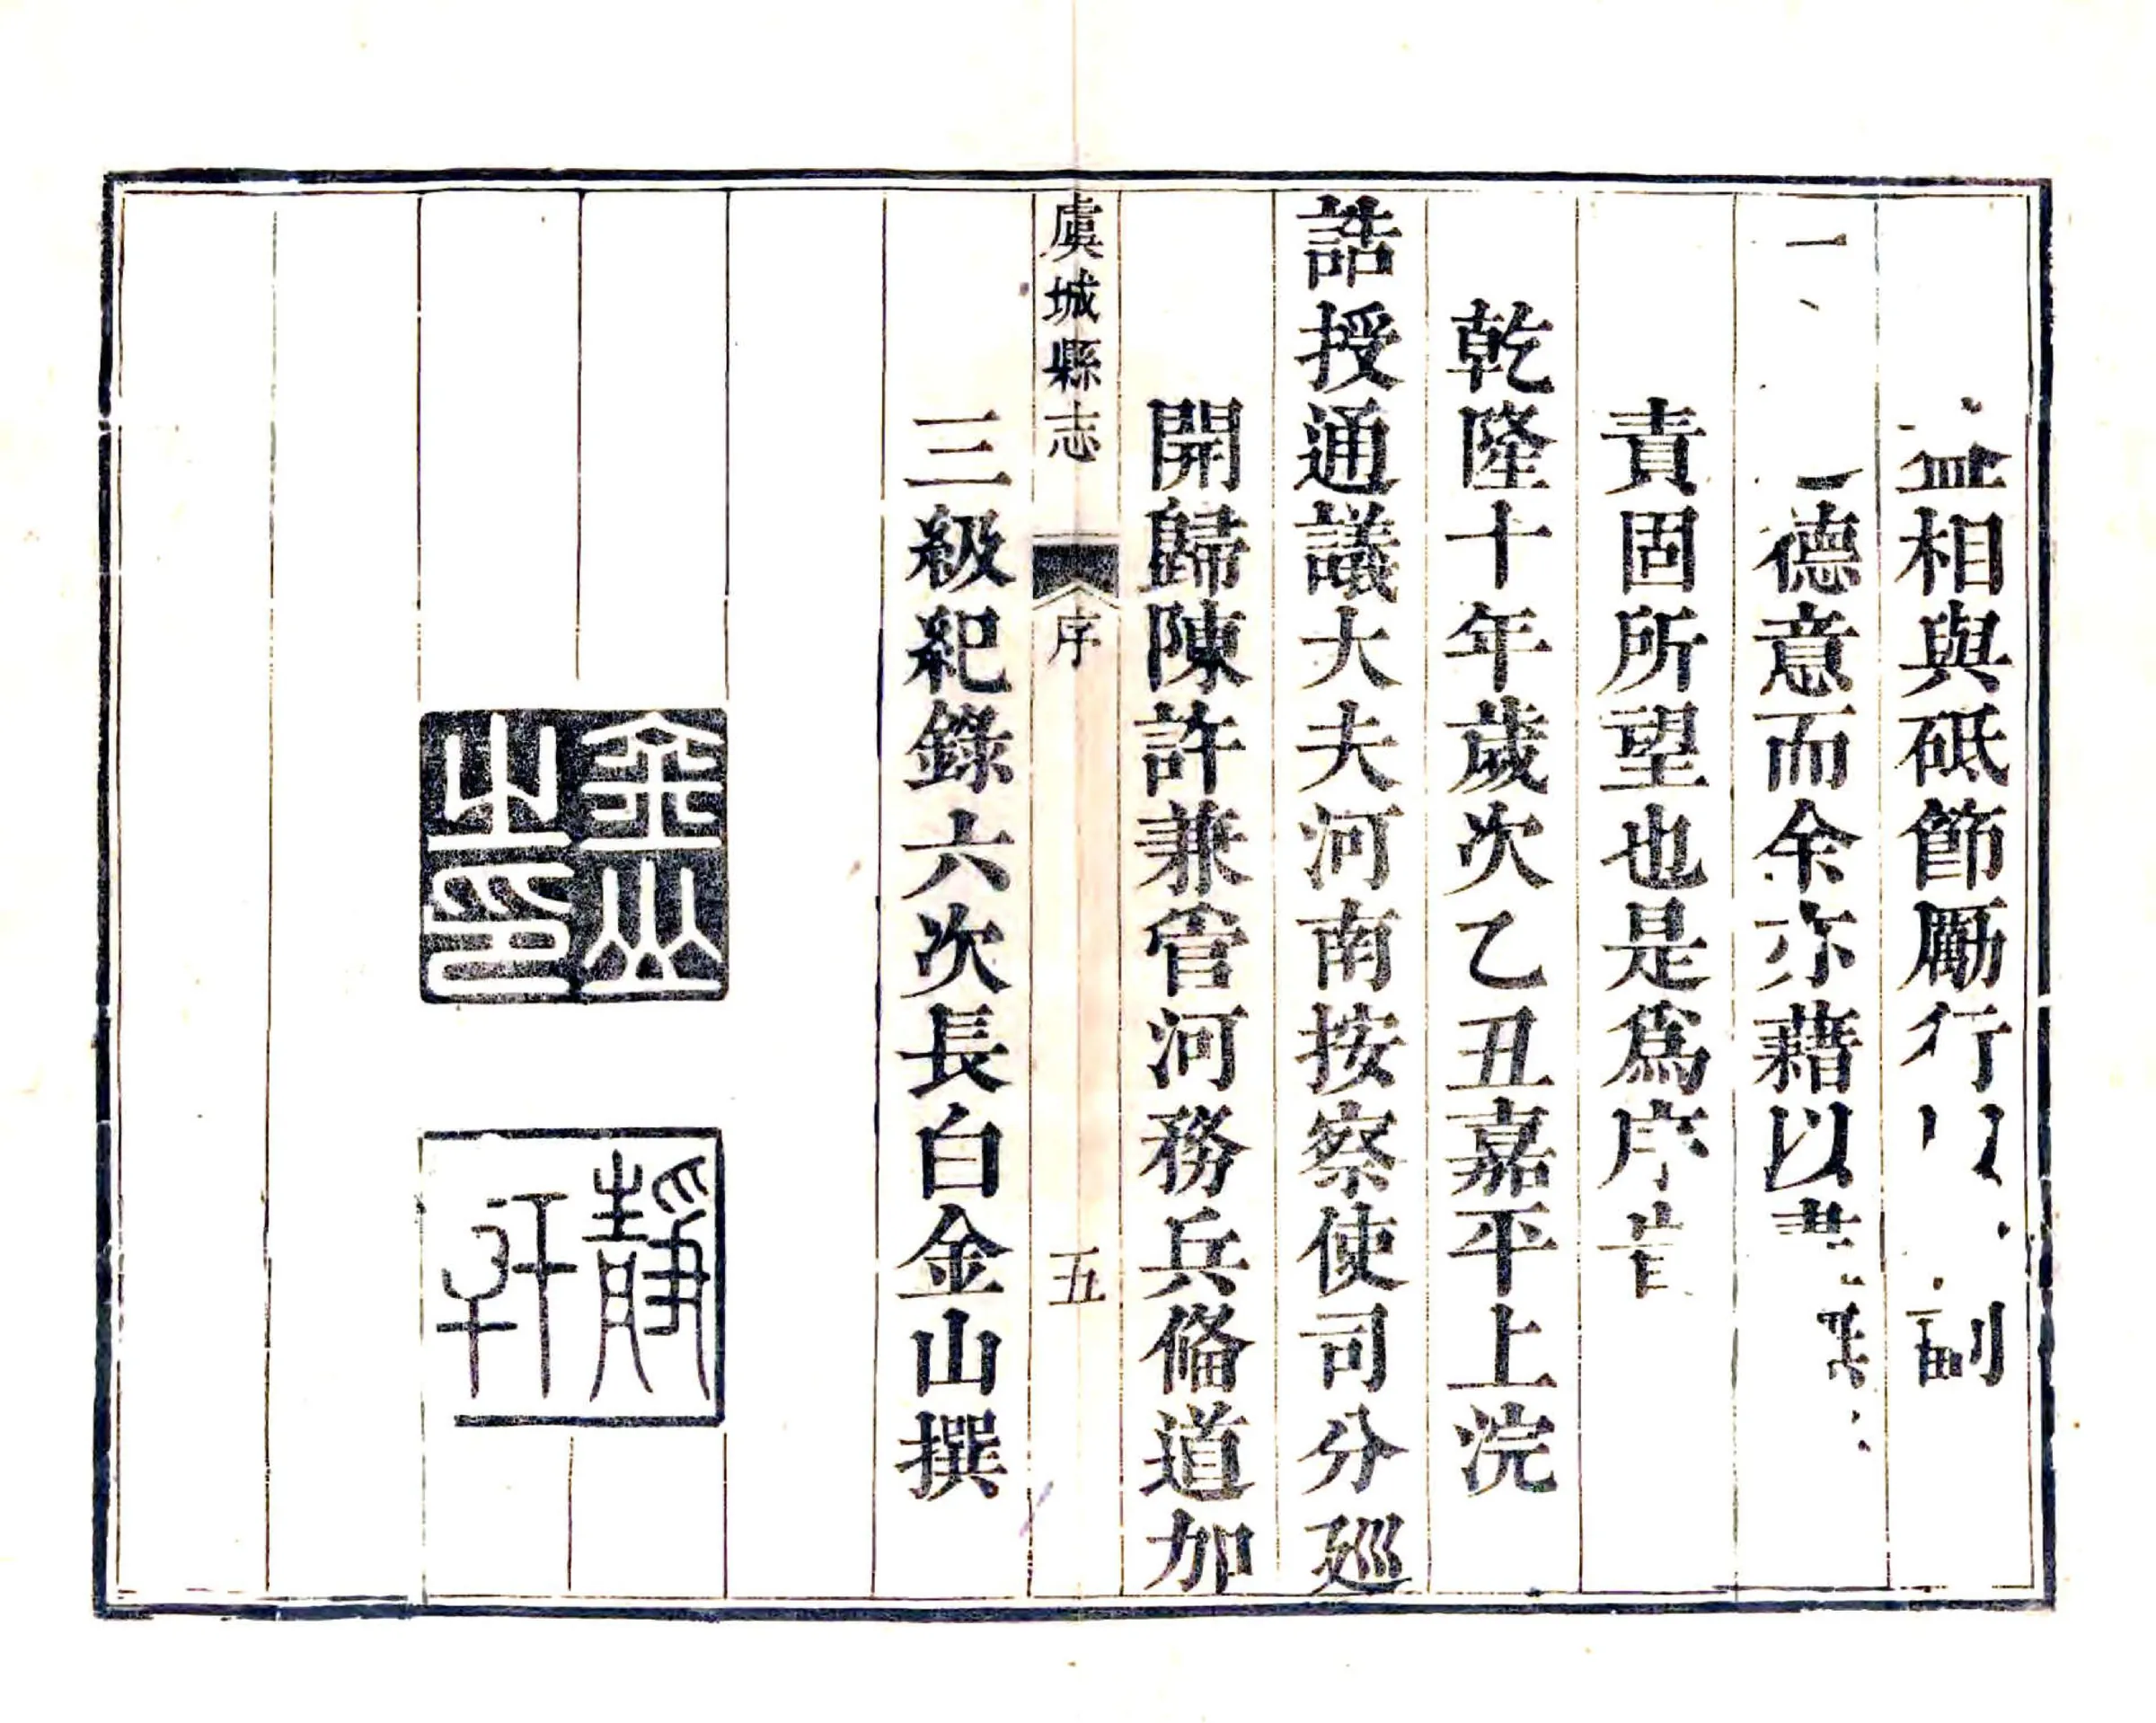 益相與砥節厲行以副
德意而余亦藉以
責固所望也是爲序旹
乾隆十年歲次乙丑嘉平上浣
誥授通議大夫河南按察使司分廵
開歸陳許兼管河務兵俻道加
虞城縣志 序 五
三級紀錄六次長白金山撰
金山之印
靜